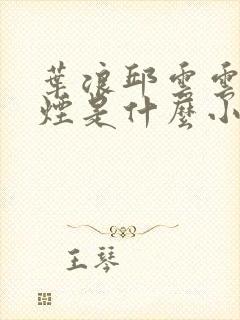 葉浪邱雲雲
煙是什麼小
王琴